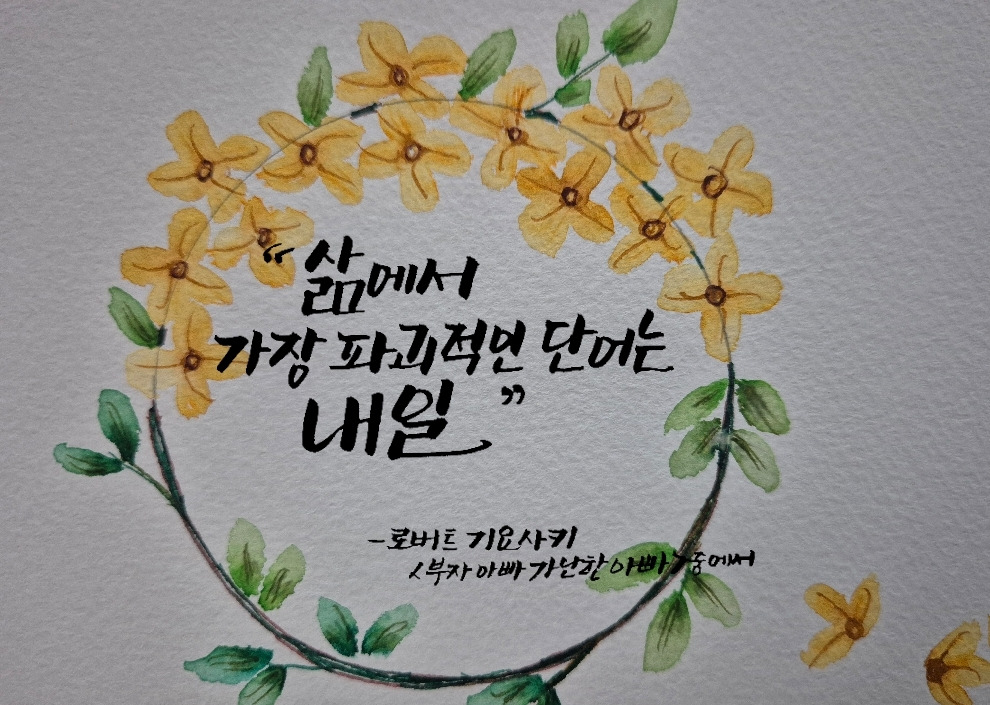 “삶에서
가장 파괴적인 단어는
내일”
-로버트 기요사키
<부자 아빠 가난한 아빠>중에서